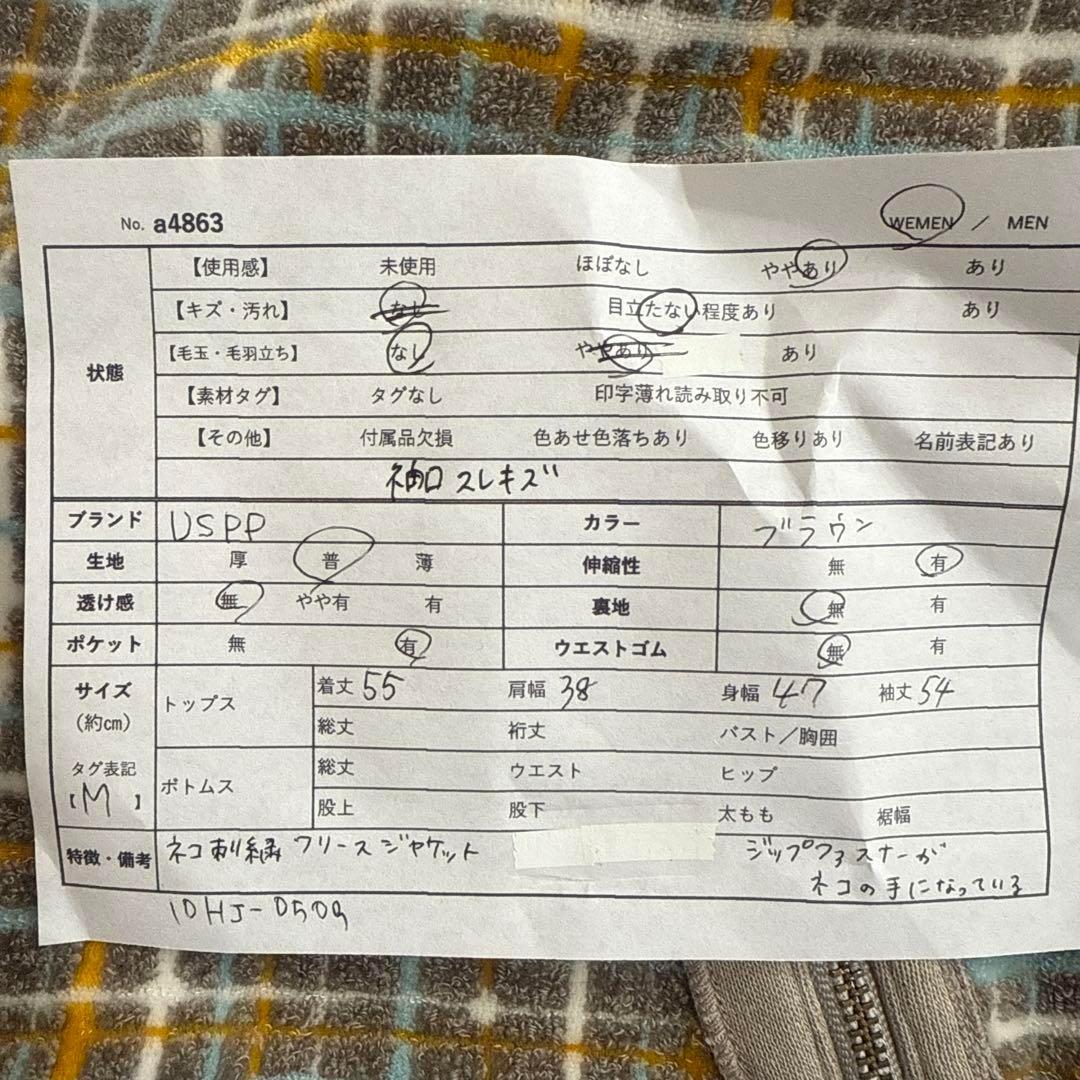 No. a4863 WEMEN / MEN
状態
【使用感】 未使用 ほぼなし ややあり あり
【キズ・汚れ】 なし 目立たない程度あり あり
【毛玉・毛羽立ち】 なし ややあり あり
【素材タグ】 タグなし 印字薄れ読み取り不可
【その他】 付属品欠損 色あせ色落ちあり 色移りあり 名前表記あり
袖口 スレキズ
ブランド USPP カラー ブラウン
生地 厚 普 薄 伸縮性 無 有
透け感 無 やや有 有 裏地 無 有
ポケット 無 有 ウエストゴム 無 有
サイズ (約cm) トップス 着丈 55 肩幅 38 身幅 47 袖丈 54
総丈 裄丈 バスト/胸囲
タグ表記 【M】 ボトムス 総丈 ウエスト ヒップ
股上 股下 太もも 裾幅
特徴・備考 ネコ刺繍 フリースジャケット ジップファスナーが
ネコの手になっている
10HJ-0509